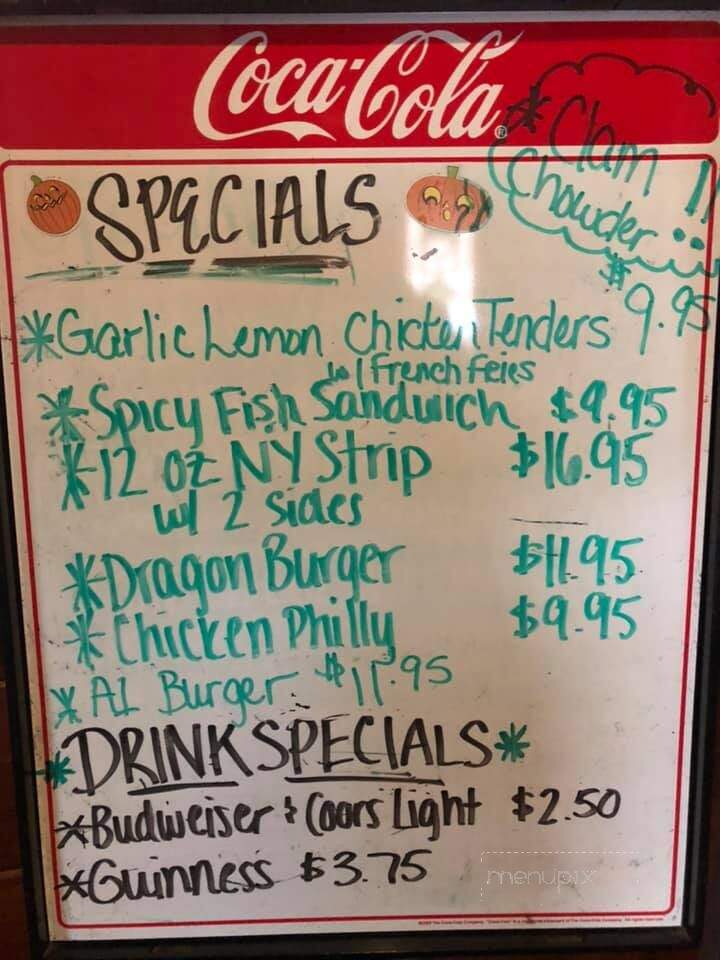 Coca-Cola®
*Clam Chowder!!
SPECIALS
*Garlic Lemon Chicken Tenders $9.95
w/ French Feies
*Spicy Fish Sandwich $9.95
*12 oz NY Strip $16.95
w/ 2 sides
*Dragon Burger $11.95
*Chicken Philly $9.95
*A1 Burger $11.95
*DRINK SPECIALS*
*Budweiser & Coors Light $2.50
*Guinness $3.75
menupix